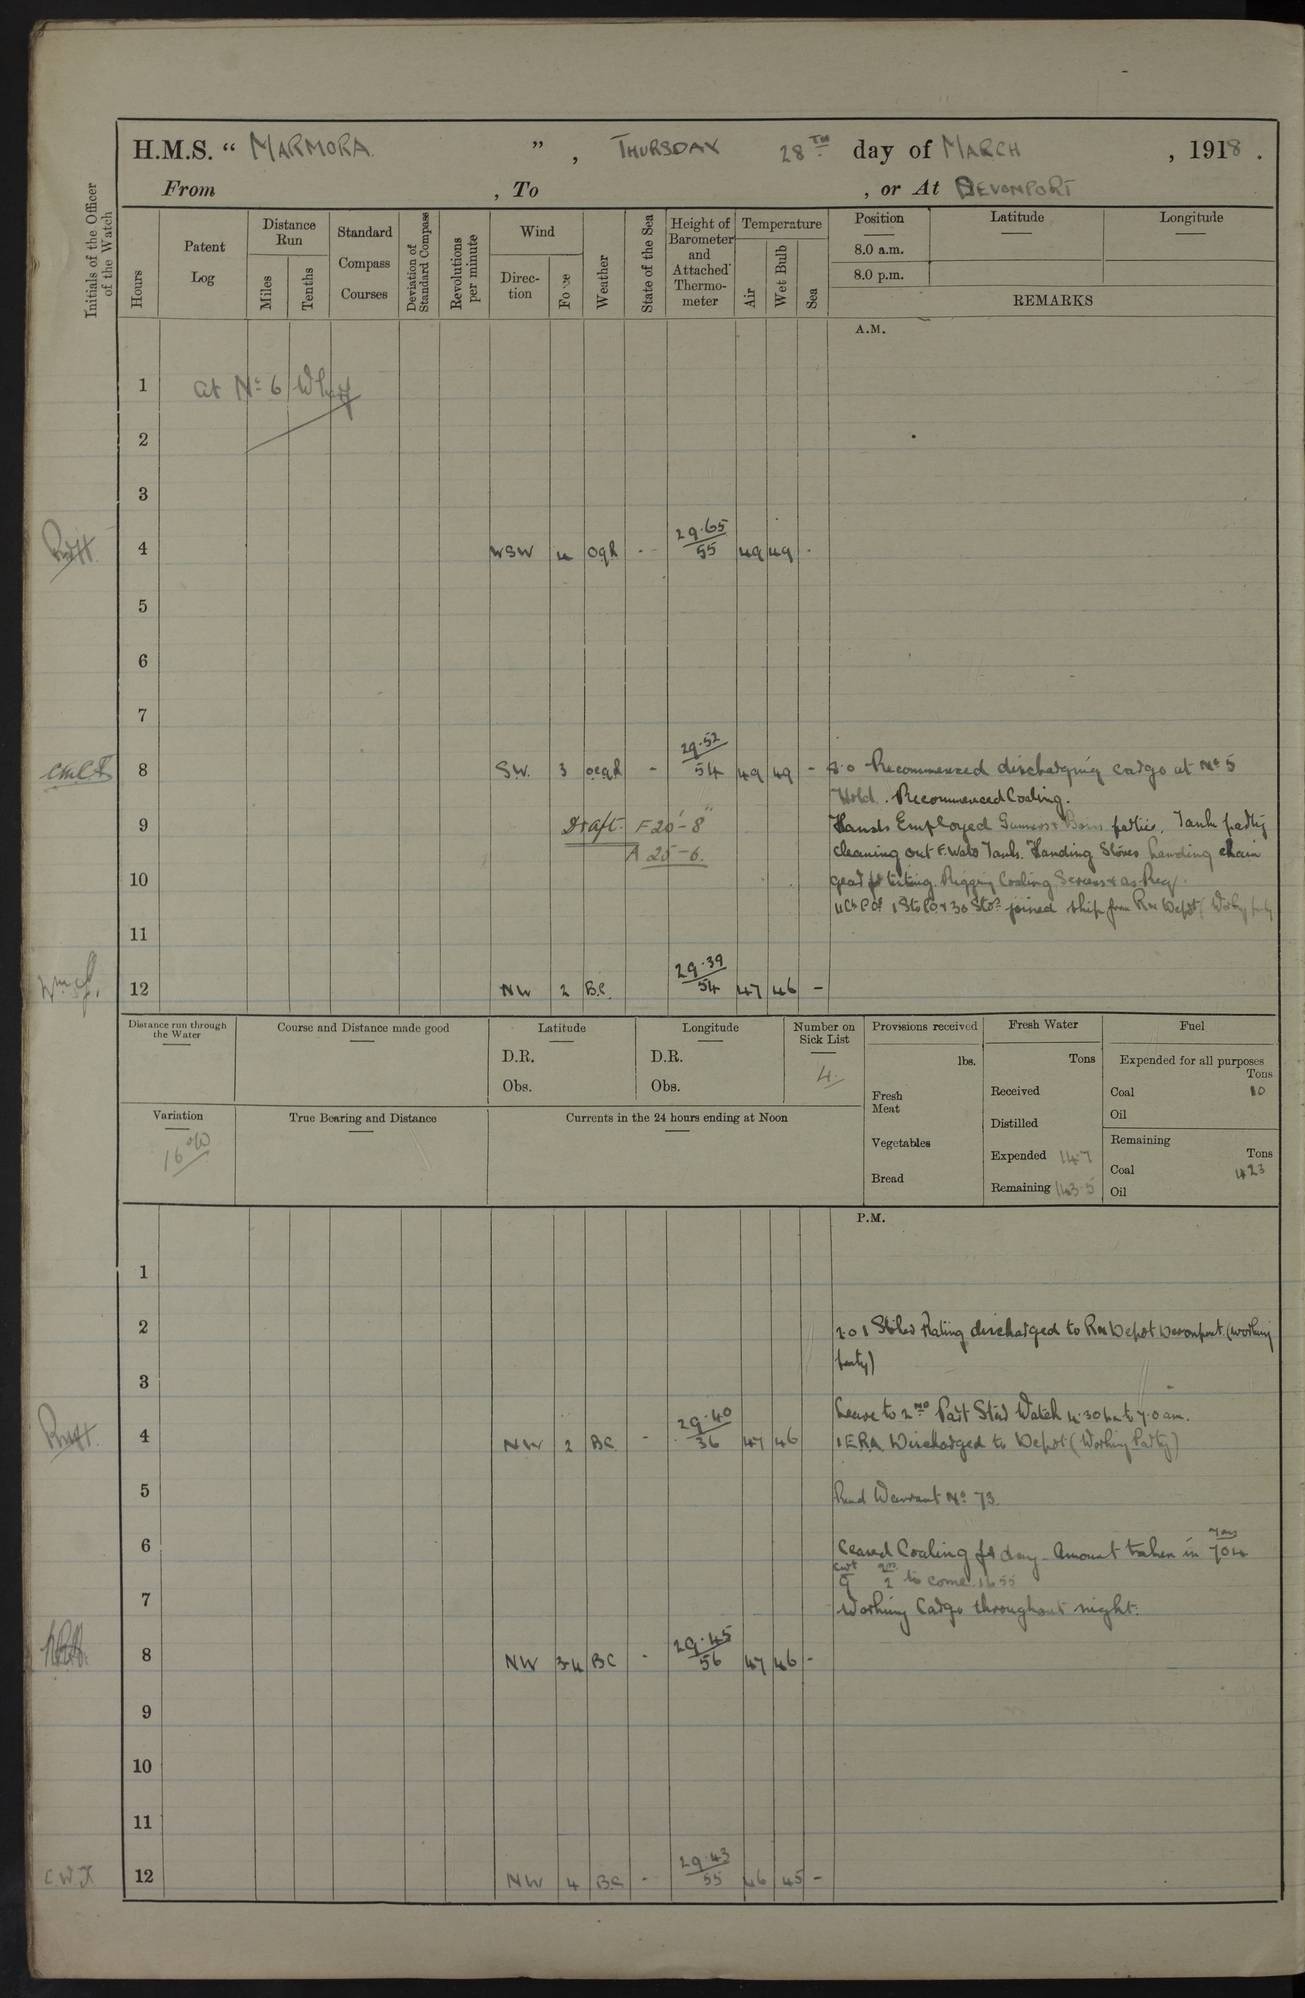 H.M.S. “ MARMORA ” , THURSDAY 28TH day of MARCH , 1918 .
From , To , or At DEVONPORT
Initials of the Officer of the Watch
Hours
Patent Log
Distance Run
Miles
Tenths
Standard Compass Courses
Deviation of Standard Compass
Revolutions per minute
Wind
Direc-tion
Force
Weather
State of the Sea
Height of Barometer and Attached Thermo-meter
Temperature
Air
Wet Bulb
Sea
Position
8.0 a.m.
8.0 p.m.
Latitude
Longitude
REMARKS
A.M.
1 at No 6 Wharf
2
3
4 WSW 4 oqR - 29.65/55 49 49
5
6
7
8 SW. 3 ocqR - 29.52/54 49 49 - 8.0 Recommenced discharging cargo at No 5
Hold. Recommenced Coaling.
9 Draft F 20'-8" Hands Employed parties. Tank party
A 25-6. cleaning out F. Water Tanks. Handing Stores Landing chain
10 gear for testing. Rigging Coaling Screens & as Req.
joined ship from RN Depot (Working party
11
12 NW 2 B.C. 29.39/54 47 46 -
Distance run through the Water
Course and Distance made good
Latitude
D.R.
Obs.
Longitude
D.R.
Obs.
Number on Sick List
4.
Variation
16°W
True Bearing and Distance
Currents in the 24 hours ending at Noon
Provisions received
lbs.
Fresh Meat
Vegetables
Bread
Fresh Water
Tons
Received
Distilled
Expended 147
Remaining 143.5
Fuel
Expended for all purposes
Tons
Coal 10
Oil
Remaining
Tons
Coal 423
Oil
P.M.
1
2 2.0 1 Stoker Rating discharged to RN Depot Devonport. (Working
party)
3
Leave to 2nd Part Stbd Watch 4.30 pm to 7.0 am.
4 NW 2 BC - 29.40/36 47 46 1 ERA Discharged to Depot (Working Party)
5 Read Warrant No 73.
6 Ceased Coaling for day. Amount taken in Tons 704
cwt 9 qrs 2 to come 1655
7 Working Cargo throughout night.
8 NW 3-4 BC - 29.45/56 47 46 -
9
10
11
C.W.T. 12 NW 4 BC - 29.43/55 46 45 -